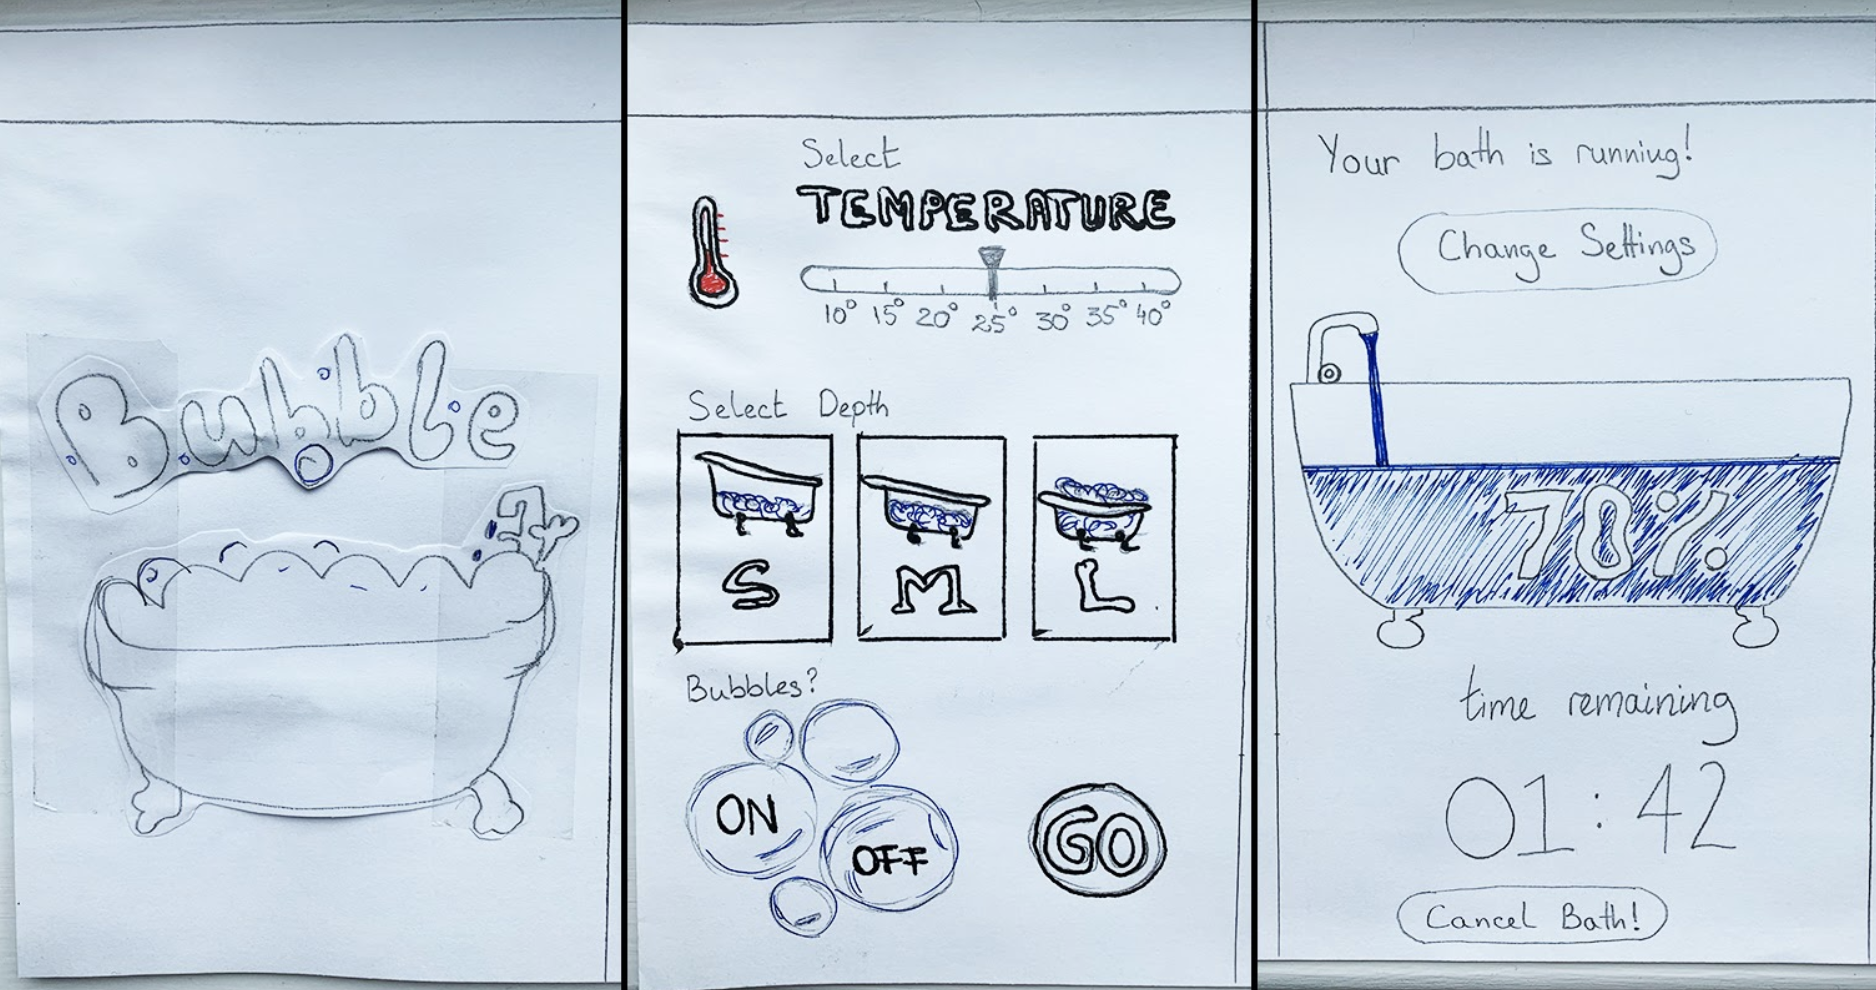 Bubble
Select
TEMPERATURE
10° 15° 20° 25° 30° 35° 40°
Select Depth
S
M
L
Bubbles?
ON
OFF
GO
Your bath is running!
Change Settings
70%
time remaining
01:42
Cancel Bath!